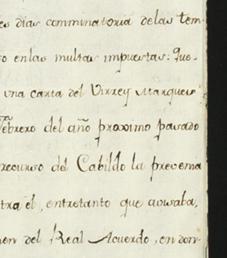 es dias comminatoria delas tem-
o enlas multas impuestas: Que-
una carta del Virrey Marques
Febrero del año proximo pasado
recurso del Cabildo la prevenia
tra el, entretanto que acusaba,
en del Real Acuerdo, en don-